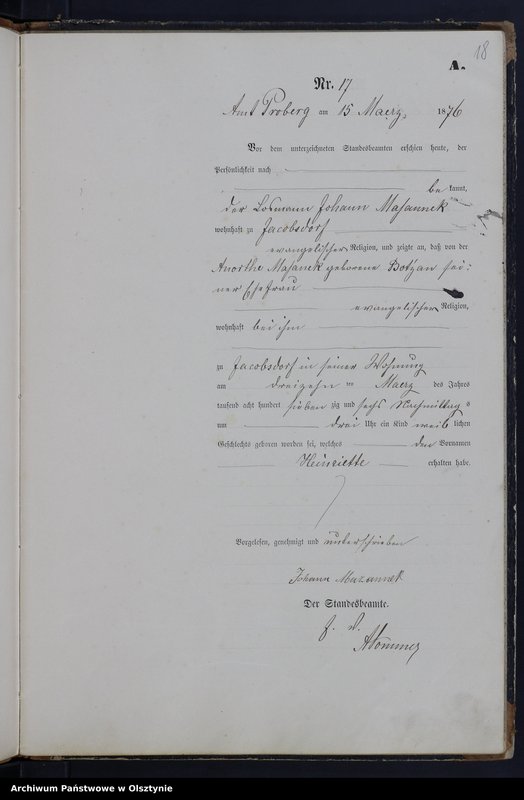 18
A.
Nr. 17
Amt Proberg am 15 Maerz 1876
Vor dem unterzeichneten Standesbeamten erschien heute, der
Persönlichkeit nach
be kannt,
der Losmann Johann Masannek
wohnhaft zu Jacobsdorf
evangelischer Religion, und zeigte an, daß von der
Anorthe Masanek geborene Botzan sei:
ner Ehefrau
evangelischer Religion,
wohnhaft bei ihm
zu Jacobsdorf in seiner Wohnung
am dreizehn ten Maerz des Jahres
tausend acht hundert sieben zig und sechs Nachmittag s
um drei Uhr ein Kind weib lichen
Geschlechts geboren worden sei, welches den Vornamen
Henriette erhalten habe.
Vorgelesen, genehmigt und unterschrieben
Johann Mazannek
Der Standesbeamte.
Archiwum Państwowe w Olsztynie